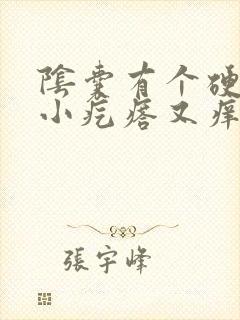 陰囊有个硬
小疙瘩又痒
張宇峰